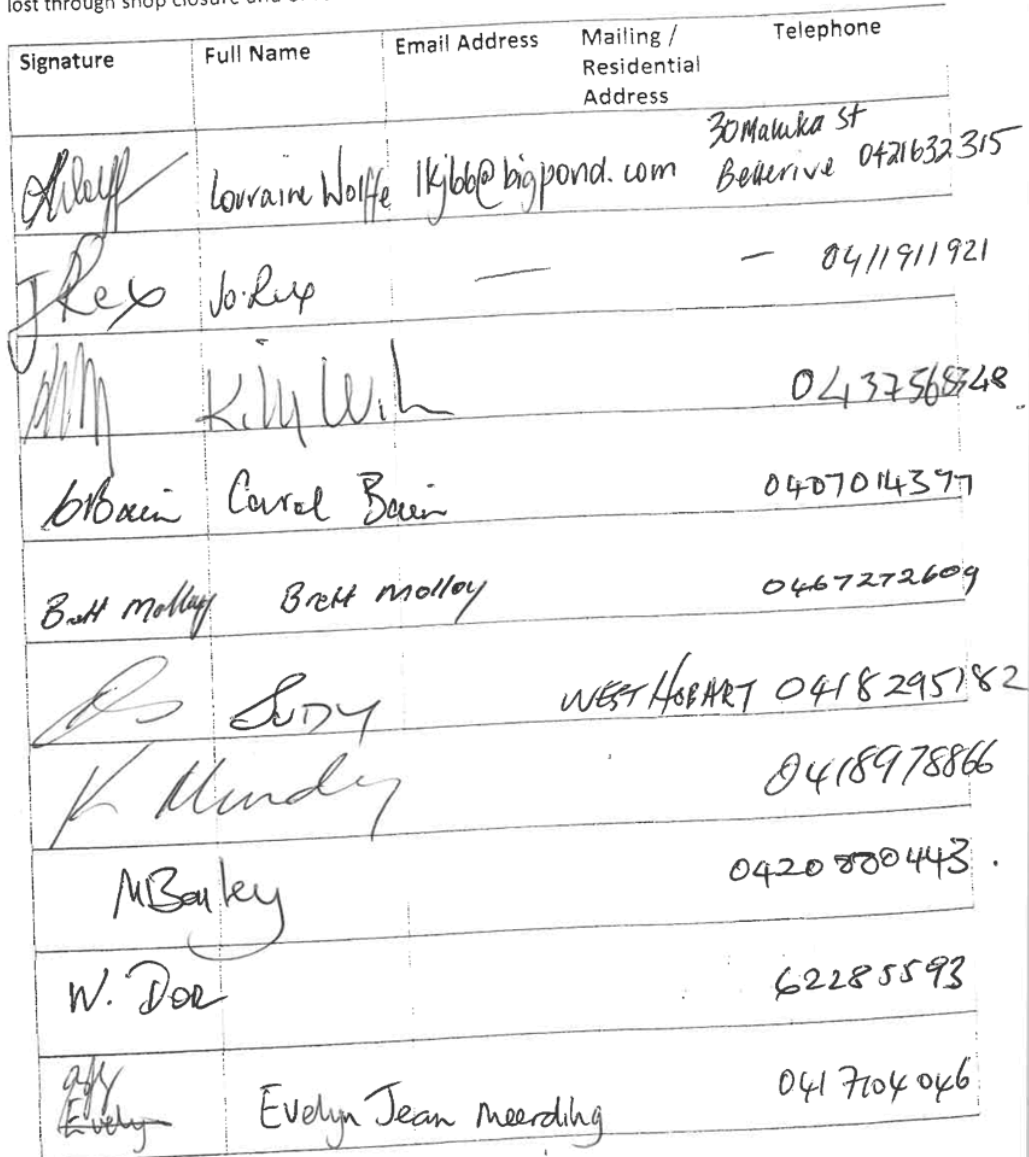 lost through shop closure and
Signature Full Name Email Address Mailing / Residential Address Telephone
Lorraine Wolffe lkjbb@bigpond.com 30 Maluka St
Bellerive 0421632315
J Rex Jo Rex — — 0411911921
0437568348
Carol Bain 0407014397
Brett Molloy Brett Molloy 0467272609
JUDY WEST HOBART 0418295182
K Mundy 0418978866
M Bailey 0420880443
W. Dor 62285593
Evelyn Evelyn Jean Meerding 0417104046